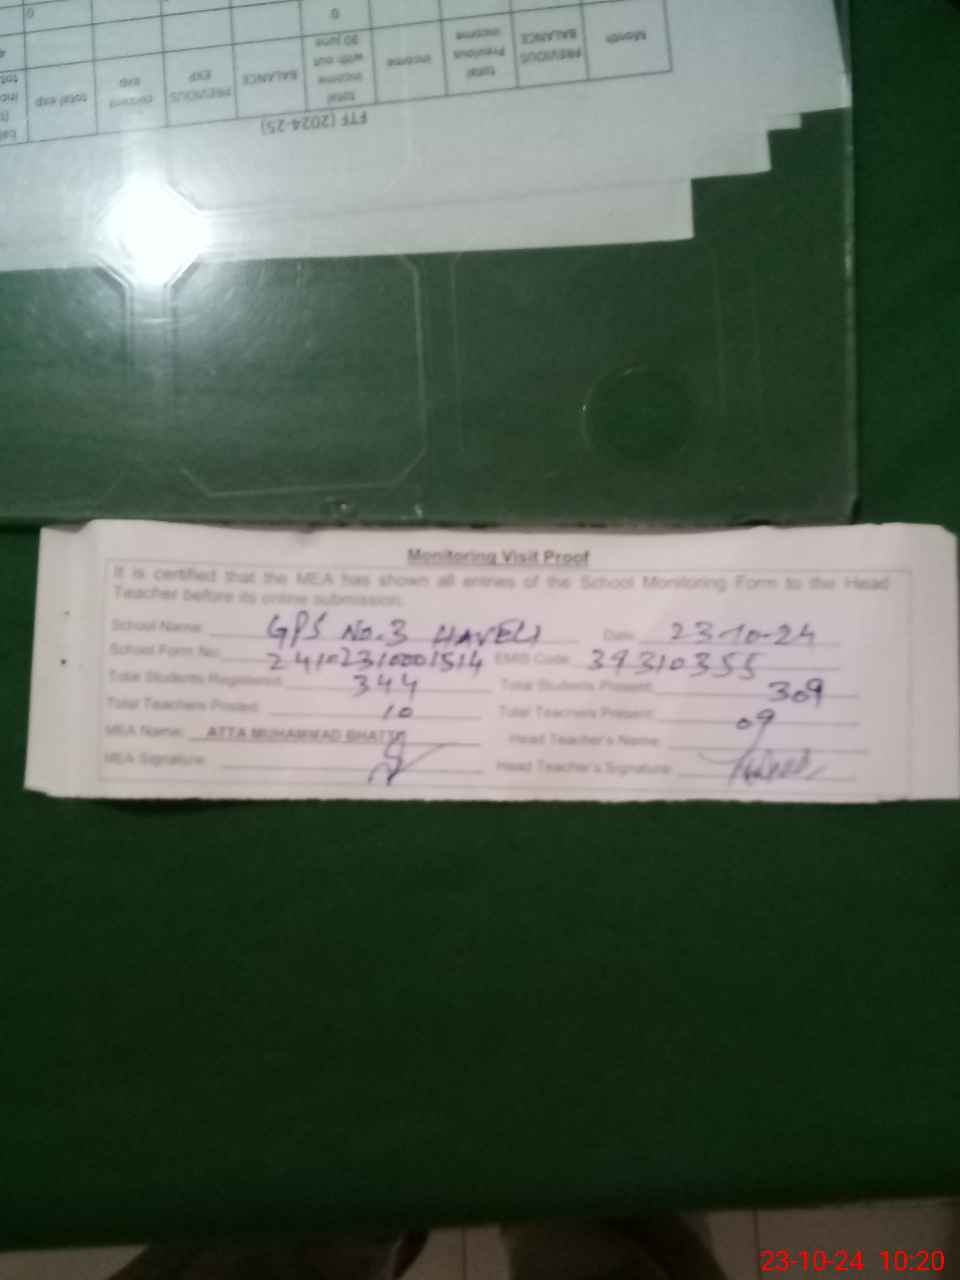 FTF (2024-25)
Month
PREVIOUS BALANCE
total Previous income
income
total income with out 30 june
BALANCE
PREVIOUS EXP
current exp
total exp
0
0
Monitoring Visit Proof
It is certified that the MEA has shown all entries of the School Monitoring Form to the Head
Teacher before its online submission.
School Name: GPS No.3 HAVELI Date: 23-10-24
School Form No: 24102310001514 EMIS Code: 39310355
Total Students Registered: 344 Total Students Present: 309
Total Teachers Posted: 10 Total Teachers Present: 09
MEA Name: ATTA MUHAMMAD BHATTI Head Teacher's Name:
MEA Signature: Head Teacher's Signature:
23-10-24 10:20